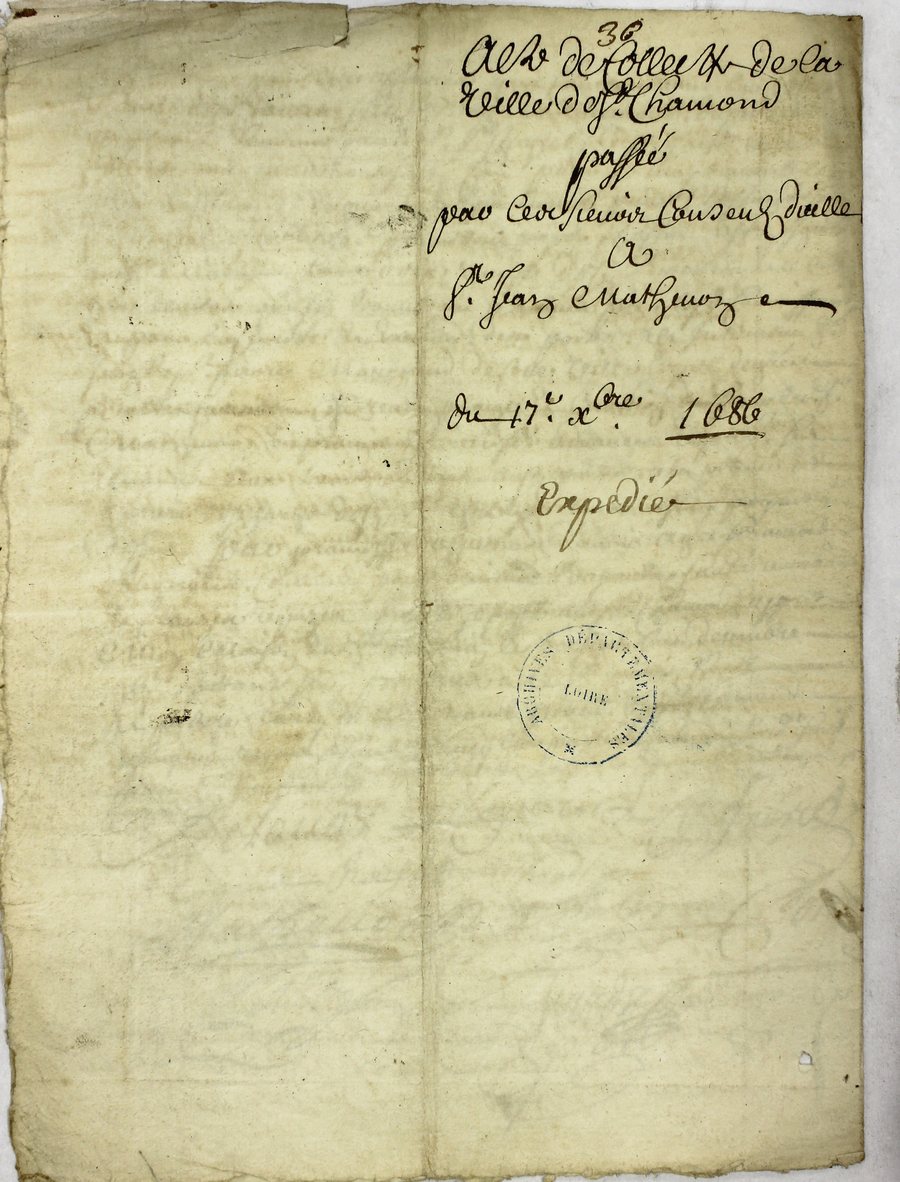 36
Acte de Collecte de la
Ville de St. Chamond
passée
par les sieurs Conseulz d'icelle
A
Sr. Jean Mathevon
du 17e. xbre. 1686
Expedié
ARCHIVES DÉPARTEMENTALES
LOIRE